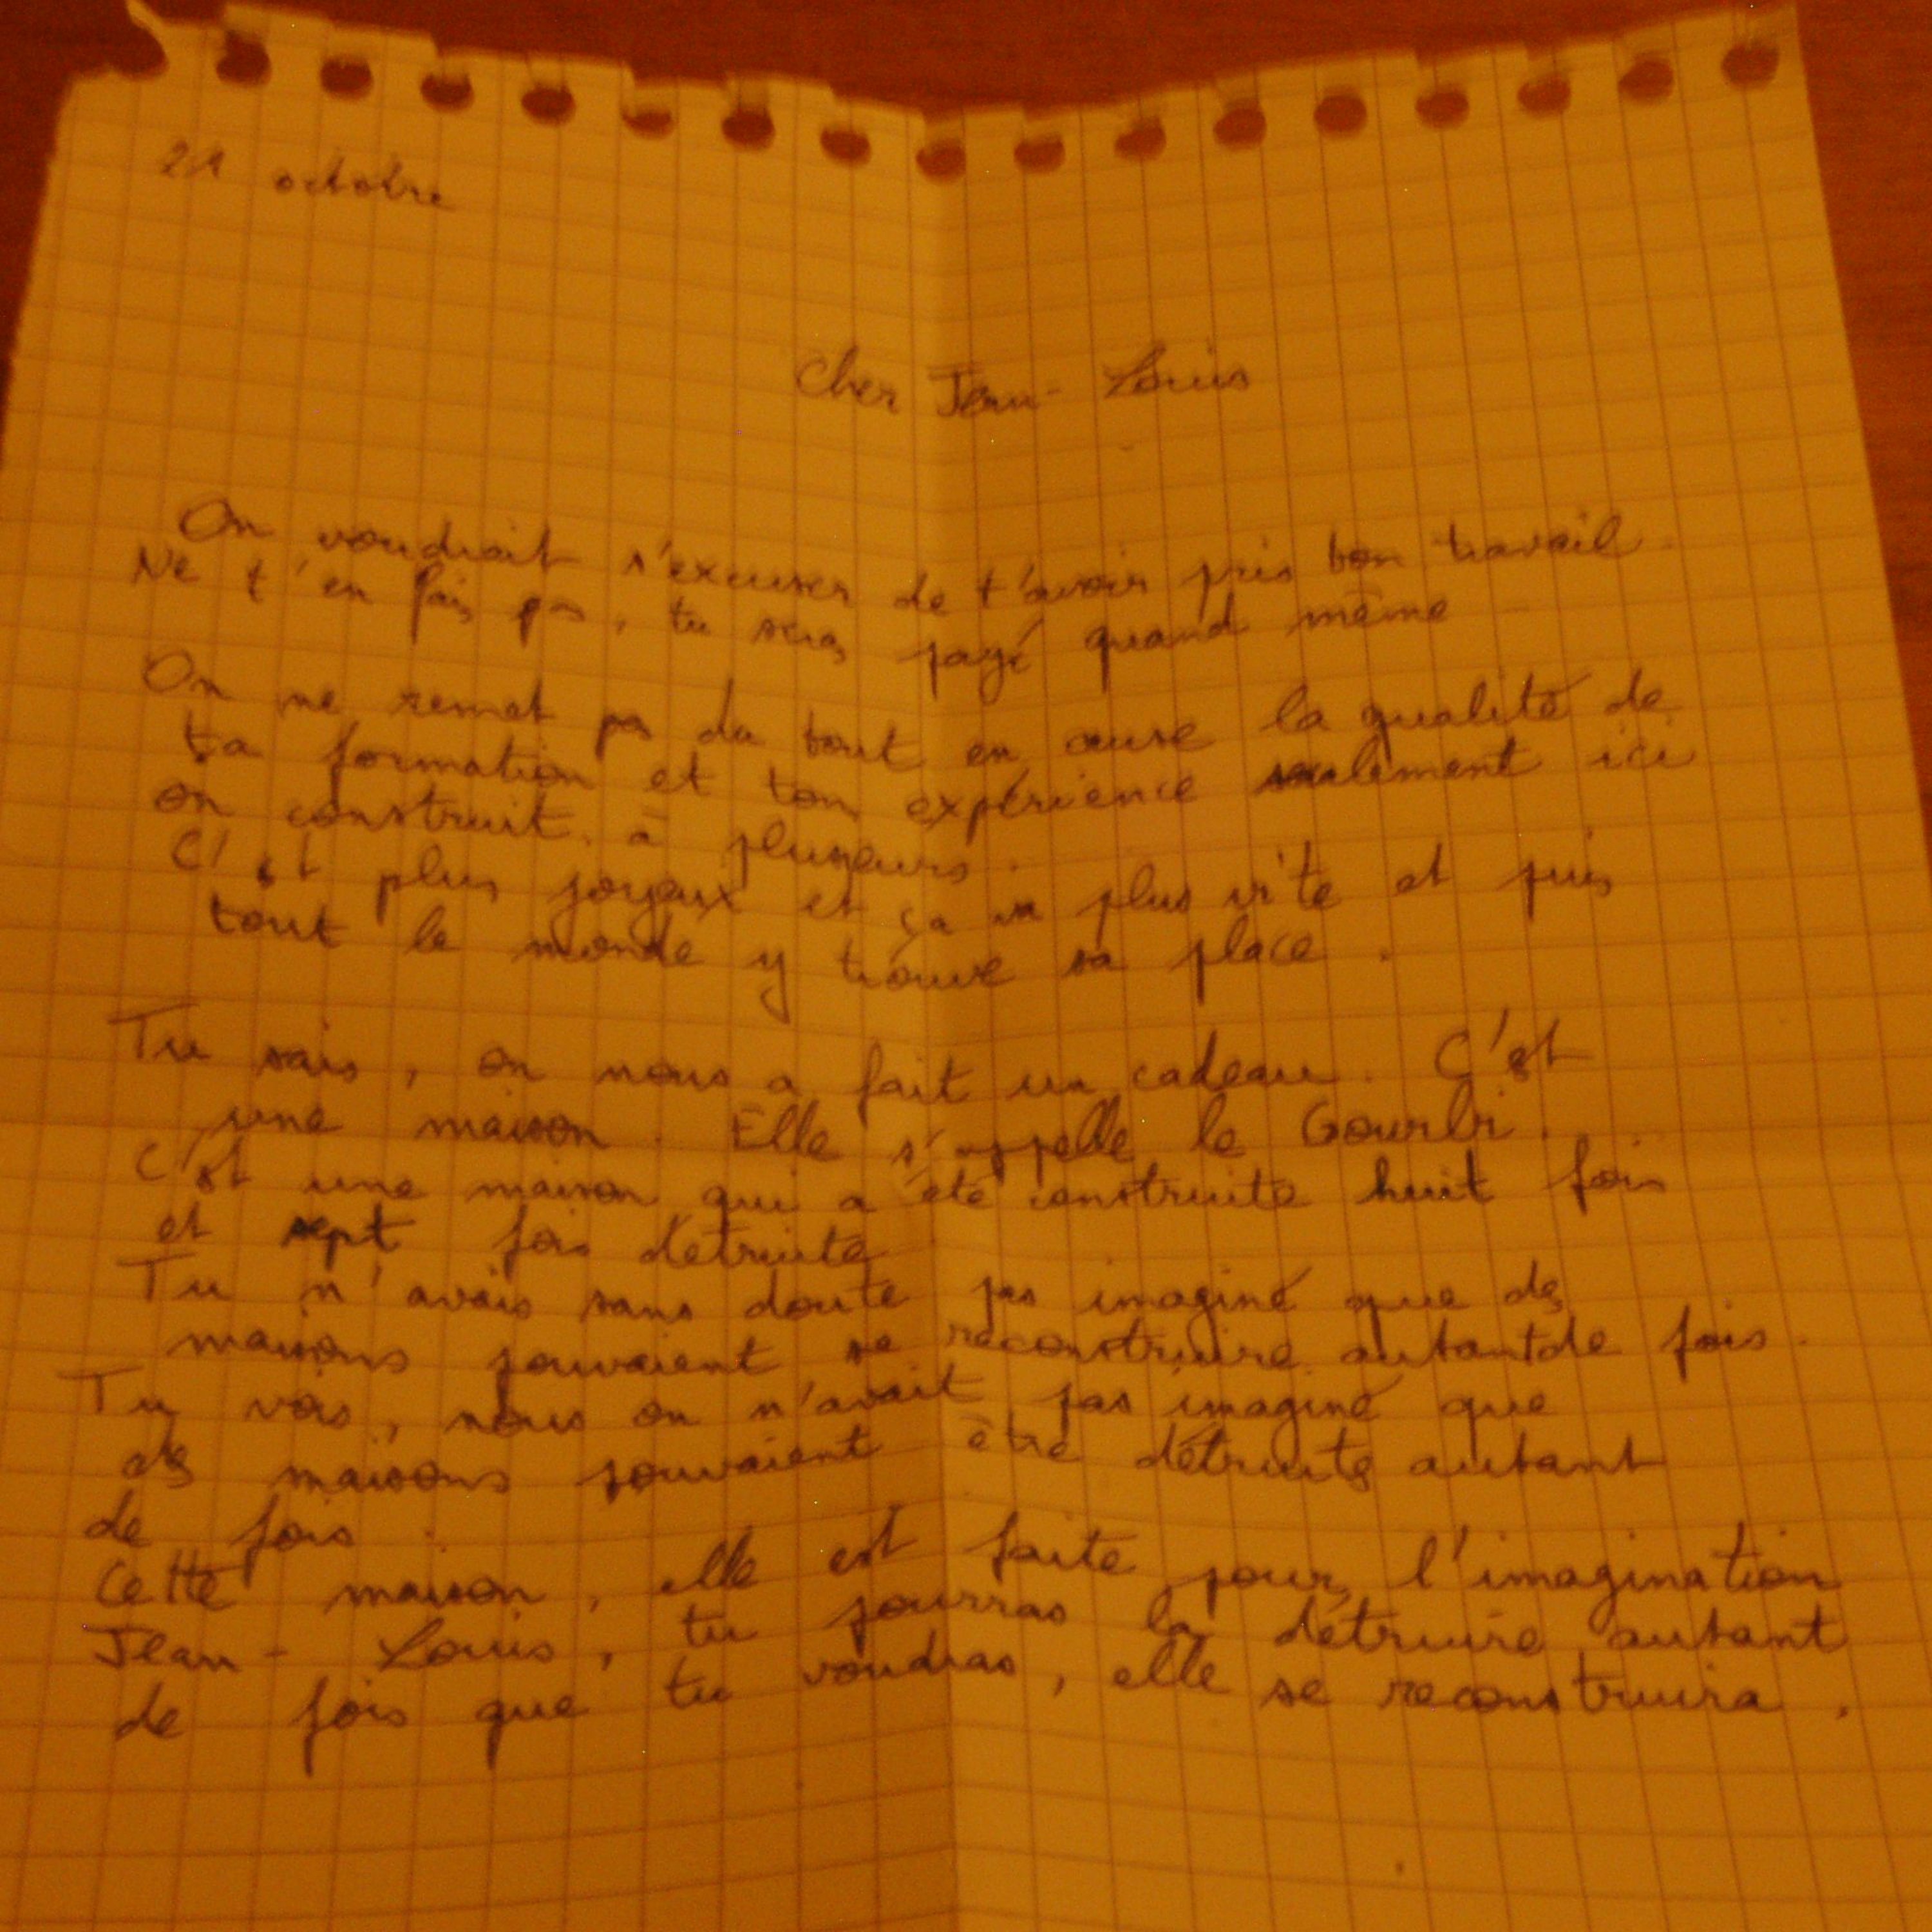 21 octobre
Cher Jean-Louis
On voudrait s'excuser de t'avoir pris ton travail.
Ne t'en fais pas, tu seras payé quand même
On ne remet pas du tout en cause la qualité de
ta formation et ton expérience seulement ici
on construit à plusieurs.
C'est plus joyeux et ça va plus vite et puis
tout le monde y trouve sa place.
Tu sais, on nous a fait un cadeau. C'est
une maison. Elle s'appelle le Gourbi.
C'est une maison qui a été construite huit fois
et sept fois détruite
Tu n'avais sans doute pas imaginé que des
maisons pouvaient se reconstruire autant de fois.
Tu vois, nous on n'avait pas imaginé que
des maisons pouvaient être détruites autant
de fois.
Cette maison, elle est faite pour l'imagination
Jean-Louis, tu pourras la détruire autant
de fois que tu voudras, elle se reconstruira.